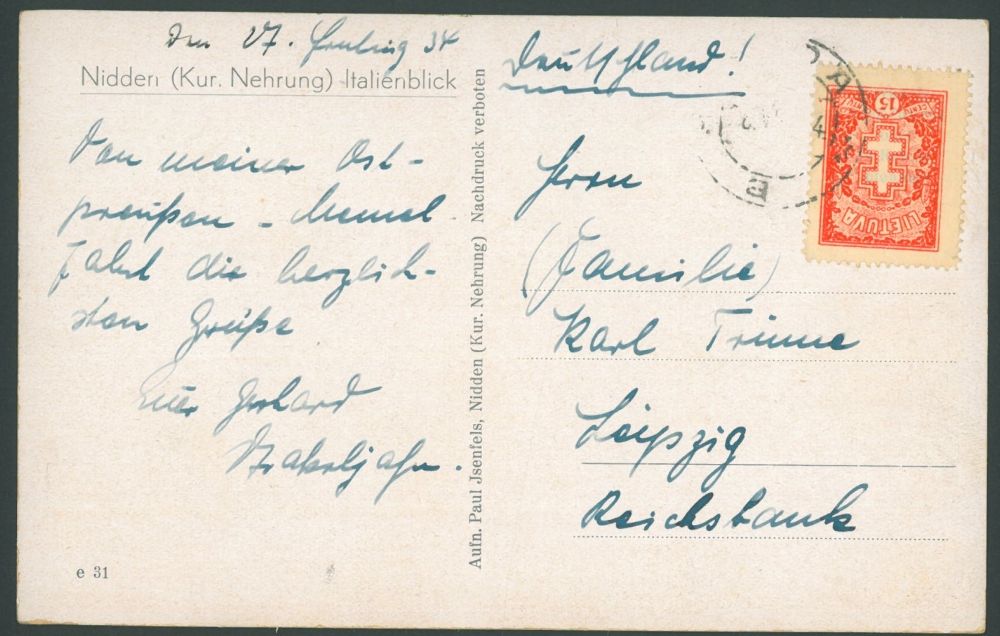 Den 27. 34
Nidden (Kur. Nehrung) Italienblick
Von meiner Ost-
preußen - Memel
Fahrt die herzlich-
sten Grüße
Euer Gerhard
Aufn. Paul Jsenfels, Nidden (Kur. Nehrung) Nachdruck verboten
e 31
Deutschland!
Herrn
(Familie)
Karl Trinne
Leipzig
Reichsbank
15
LIETUVA